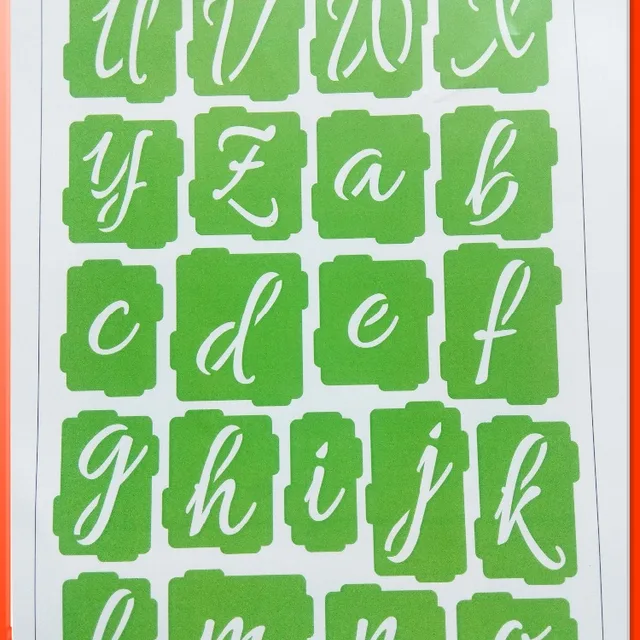 U V W X
Y Z a b
c d e f
g h i j k
l m n o